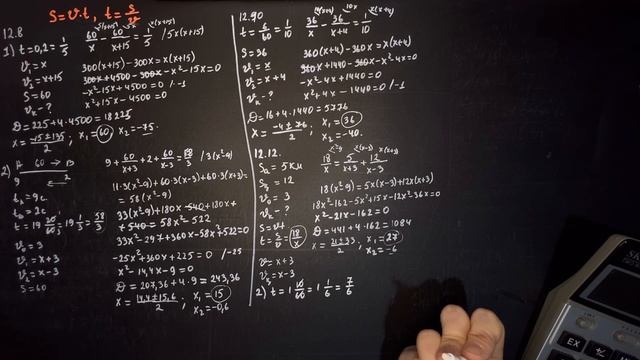 S = v·t, t = s/v
12.8
1) t = 0,2 = 1/5
v₁ = x
v₂ = x+15
S = 60
vₖ - ?
60/x - 60/(x+15) = 1/5 / 5x(x+15)
300(x+15) - 300x = x(x+15)
300x + 4500 - 300x - x² - 15x = 0
-x² - 15x + 4500 = 0 / -1
x² + 15x - 4500 = 0
D = 225 + 4·4500 = 18225
x = (-15 ± 135)/2; x₁ = 60 x₂ = -75.
2) A 60 → B
9 + 60/(x+3) + 2 + 60/(x-3) = 58/3 / 3(x²-9)
11·3(x²-9) + 60·3(x-3) + 60·3(x+3) =
= 58(x²-9)
33(x²-9) + 180x - 540 + 180x +
+ 540 = 58x² - 522
33x² - 297 + 360x - 58x² + 522 = 0
-25x² + 360x + 225 = 0 / -25
x² - 14,4x - 9 = 0
D = 207,36 + 4·9 = 243,36
x = (14,4 ± 15,6)/2; x₁ = 15 x₂ = -0,6
t = 19 20/60 = 19 1/3 = 58/3
v₂ = 3
v₁ = x+3
v₃ = x-3
S = 60
12.90
t = 6/60 = 1/10
S = 36
v₁ = x
v₂ = x+4
vₖ - ?
36/x - 36/(x+4) = 1/10
360(x+4) - 360x = x(x+4)
360x + 1440 - 360x - x² - 4x = 0
-x² - 4x + 1440 = 0 / -1
x² + 4x - 1440 = 0
D = 16 + 4·1440 = 5776
x = (-4 ± 76)/2; x₁ = 36 x₂ = -40.
12.12.
= 5 км
= 12
= 3
vₖ - ?
S = vt
t = s/v = 18/x
v = x+3
v = x-3
18/x = 5/(x+3) + 12/(x-3)
18(x²-9) = 5x(x-3) + 12x(x+3)
18x² - 162 - 5x² + 15x - 12x² - 36x = 0
x² - 21x - 162 = 0
D = 441 + 4·162 = 1084
x = (21 ± 33)/2; x₁ = 27 x₂ = -6
2) t = 1 10/60 = 1 1/6 = 7/6